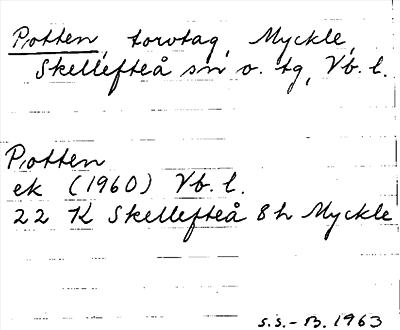 Potten, torvtag, Myckle,
Skellefteå sn o. tg, Vb. l.
Potten
ek (1960) Vb. l.
22 K Skellefteå 8 h Myckle
s.s.-B. 1963